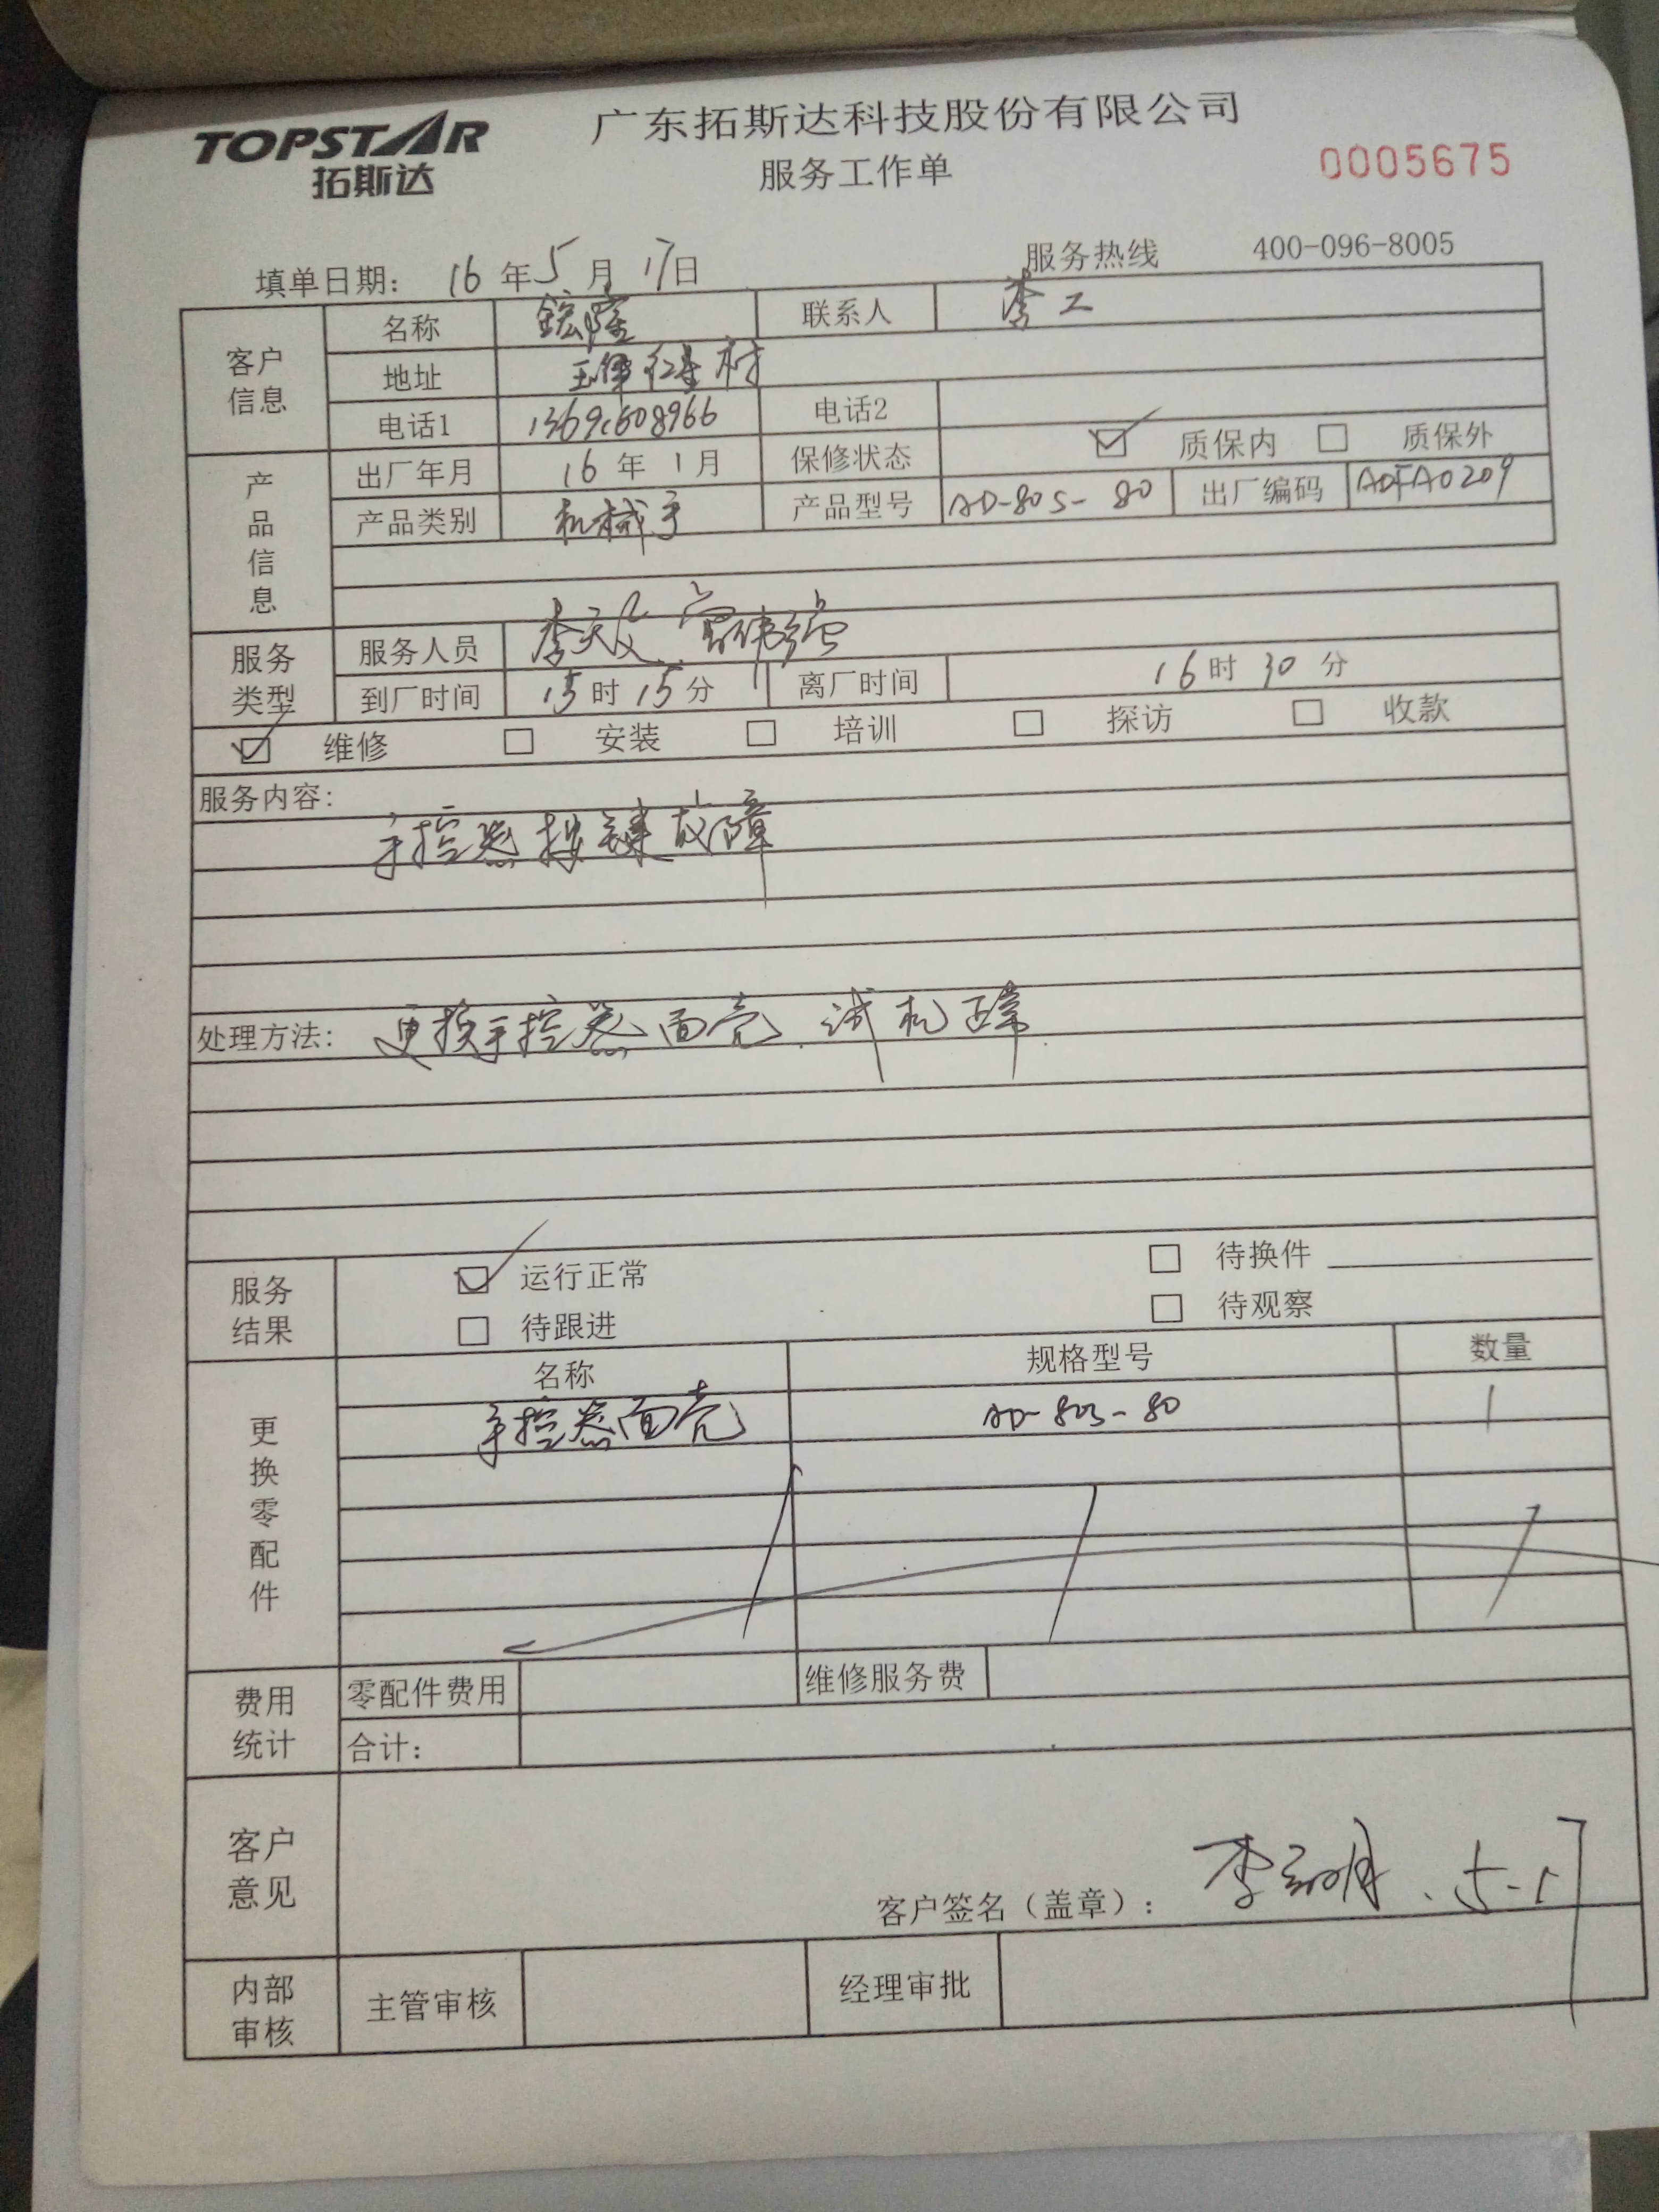 TOPSTAR
拓斯达
广东拓斯达科技股份有限公司
服务工作单
0005675
填单日期： 16 年 5 月 17 日
服务热线 400-096-8005
客户信息
名称 鋐隆 联系人 李工
地址
电话1 电话2
产品信息
出厂年月 16 年 1 月 保修状态 ☑ 质保内 □ 质保外
产品类别 机械手 产品型号 AD-80S-80 出厂编码 ADFA0209
服务类型
服务人员
到厂时间 15 时 15 分 离厂时间 16 时 30 分
☑ 维修 □ 安装 □ 培训 □ 探访 □ 收款
服务内容：
手控器按键故障
处理方法： 更换手控器面壳.试机正常.
服务结果
☑ 运行正常 □ 待换件
□ 待跟进 □ 待观察
更换零配件
名称 规格型号 数量
手控器面壳 AD-80S-80 1
费用统计
零配件费用 维修服务费
合计：
客户意见
客户签名（盖章）： 5-17
内部审核
主管审核 经理审批